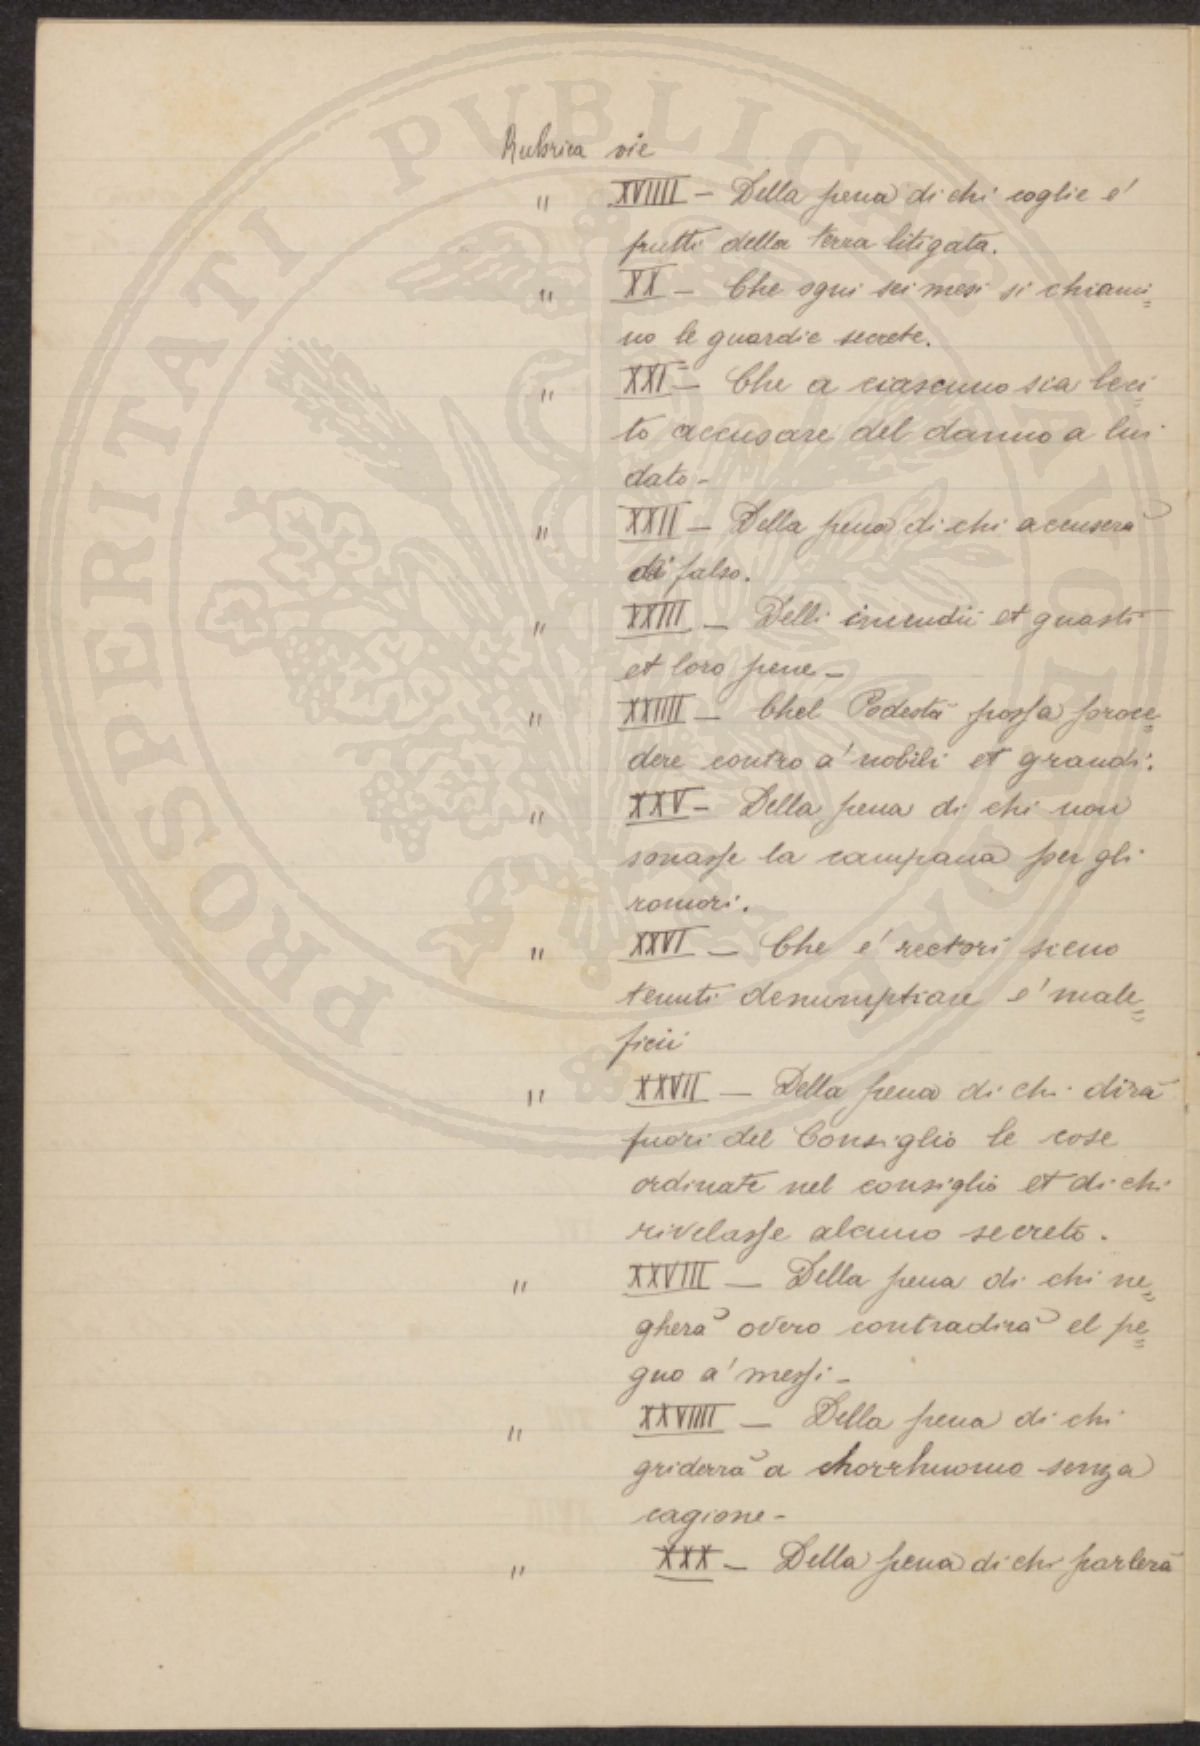 Rubrica vie
" XVIIII - Della pena di chi coglie e'
frutti della terra litigata.
" XX - Che ogni sei mesi si chiami=
no le guardie secrete.
" XXI - Che a ciascuno sia leci=
to accusare del danno a lui
dato -
" XXII - Della pena di chi accuserà
di falso.
" XXIII - Delli incendii et guasti
et loro pene -
" XXIIII - Chel Podestà possa proce=
dere contro a' nobili et grandi.
" XXV - Della pena di chi non
sonasse la campana per gli
romori.
" XXVI - Che e' rectori sieno
tenuti denumptiare e' male=
ficii
" XXVII - Della pena di chi dirà
fuori del Consiglio le cose
ordinate nel consiglio et di chi
rivelasse alcuno secreto.
" XXVIII - Della pena di chi ne=
gherà overo contradirà el pe=
gno a' messi -
" XXVIIII - Della pena di chi
griderrà a chorrhuomo senza
cagione -
" XXX - Della pena di chi parlerà
PROSPERITATI PUBLICAE